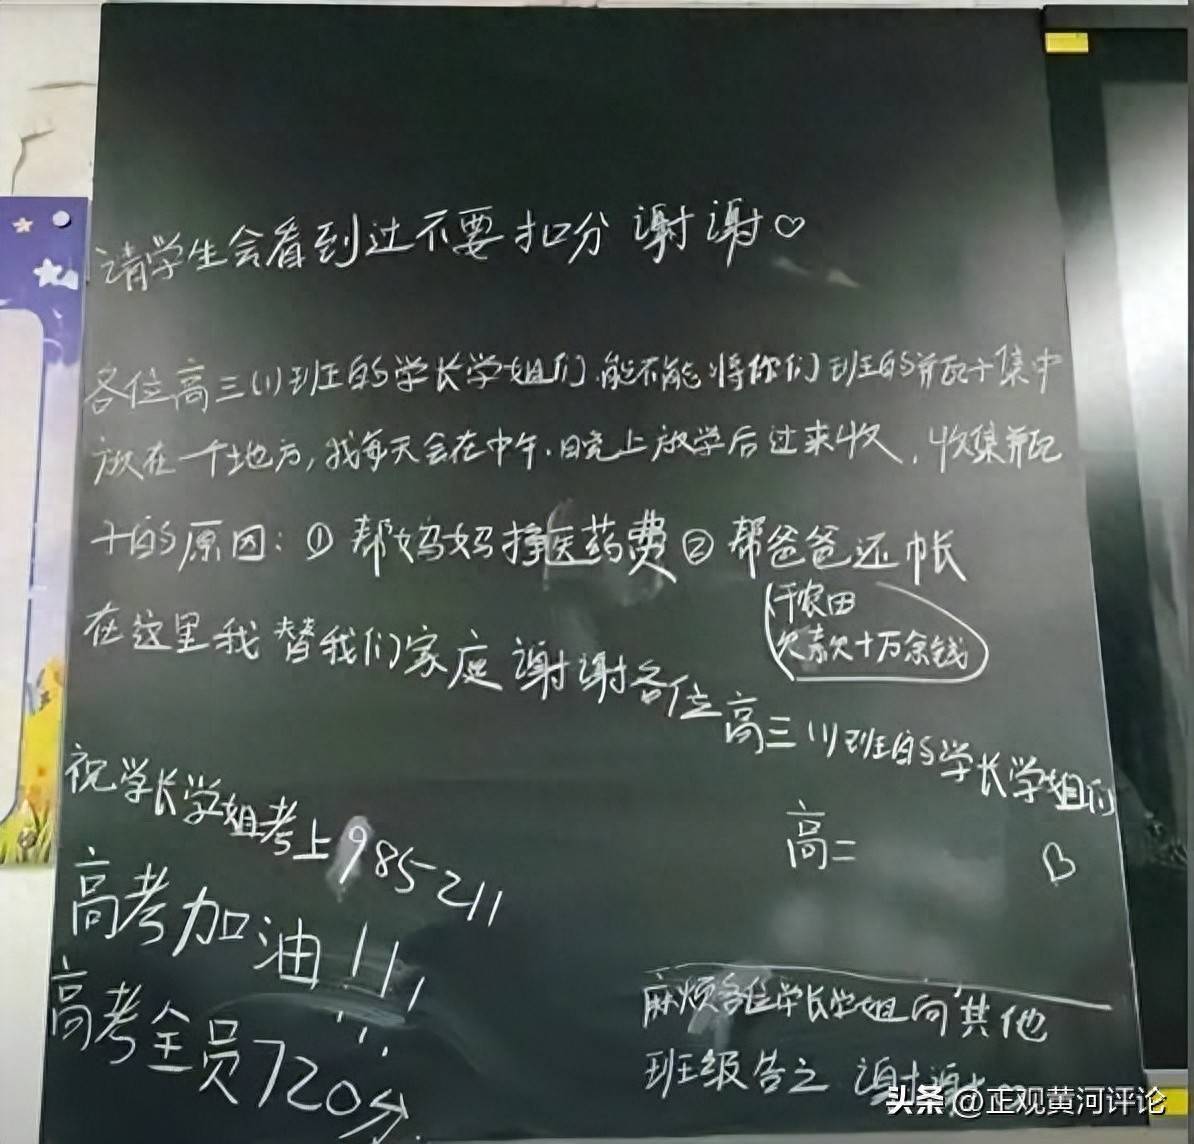 请学生会看到过不要扣分 谢谢♡
各位高三(1)班的学长学姐们,能不能将你们班的并瓦十集中
放在一个地方,我每天会在中午、晚上放学后过来收,收集并瓦
十的原因:① 帮妈妈挣医药费 ② 帮爸爸还帐
(干农田
欠款十万余钱)
在这里我替我们家庭谢谢各位高三(1)班的学长学姐们
祝学长学姐考上985211
高二
高考加油!!!
高考全员720分!!
麻烦各位学长学姐向其他
班级告之 谢谢
头条 @正观黄河评论